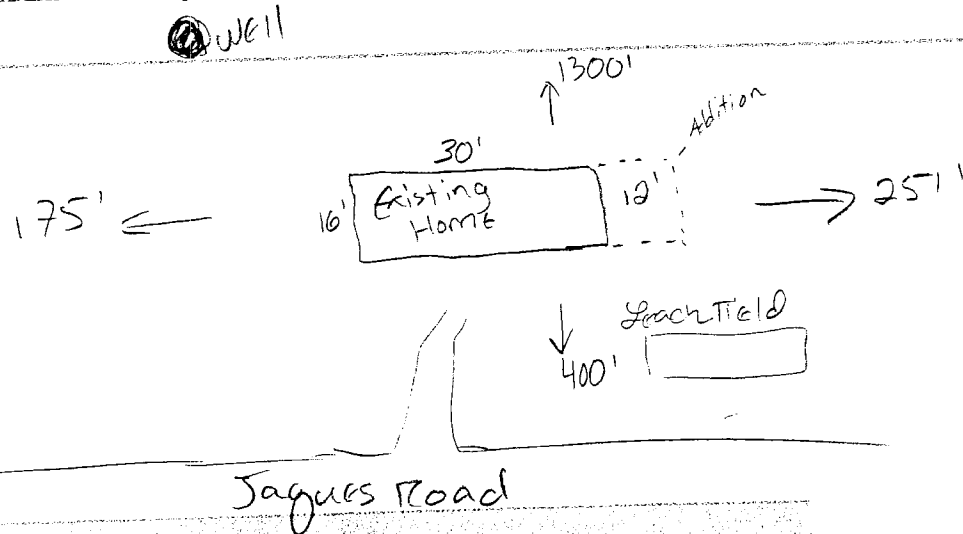 Well
1300'
Adition
30'
175'
16'
Existing
Home
12'
251'
Leach Field
400'
Jaques Road